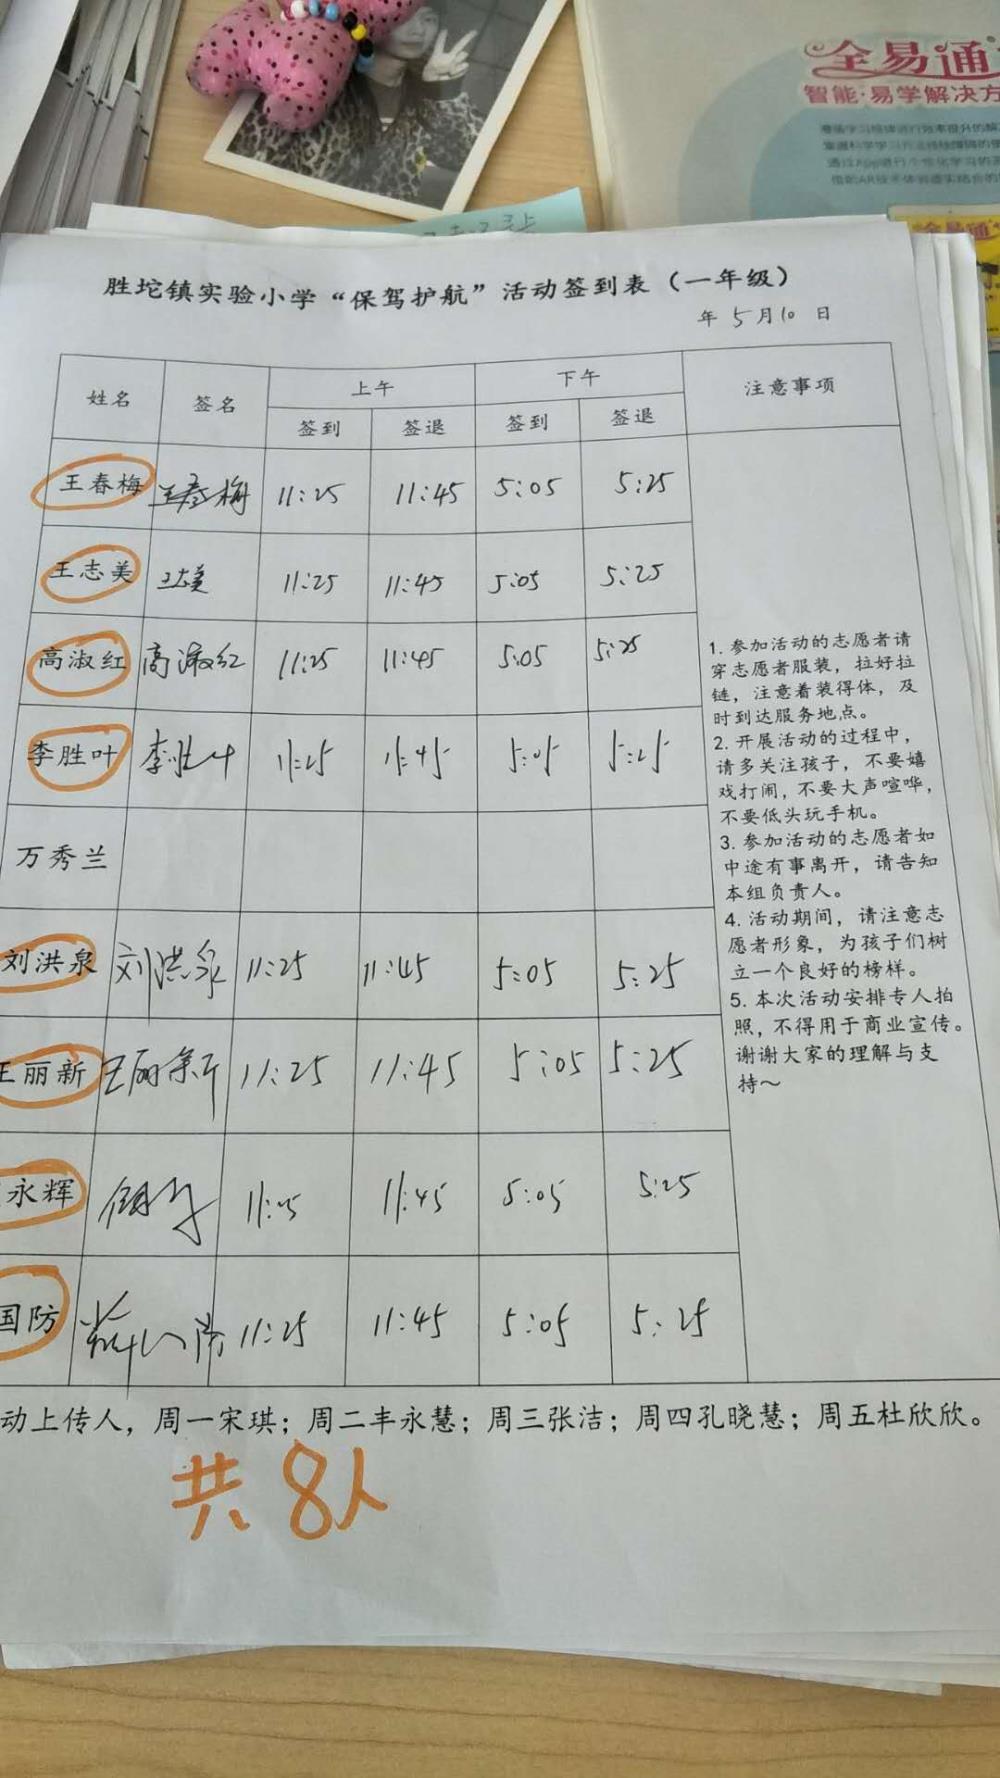 全易通
智能·易学解决方
全易通
胜坨镇实验小学“保驾护航”活动签到表（一年级）
年 5月10 日
姓名 签名 上午 下午 注意事项
签到 签退 签到 签退
王春梅 王春梅 11:25 11:45 5:05 5:25
王志美 王志美 11:25 11:45 5:05 5:25
高淑红 高淑红 11:25 11:45 5:05 5:25
李胜叶 李胜叶 11:25 11:45 5:05 5:25
万秀兰
刘洪泉 刘洪泉 11:25 11:45 5:05 5:25
王丽新 王丽新 11:25 11:45 5:05 5:25
永辉 11:25 11:45 5:05 5:25
国防 11:25 11:45 5:05 5:25
1. 参加活动的志愿者请
穿志愿者服装，拉好拉
链，注意着装得体，及
时到达服务地点。
2. 开展活动的过程中，
请多关注孩子，不要嬉
戏打闹，不要大声喧哗，
不要低头玩手机。
3. 参加活动的志愿者如
中途有事离开，请告知
本组负责人。
4. 活动期间，请注意志
愿者形象，为孩子们树
立一个良好的榜样。
5. 本次活动安排专人拍
照，不得用于商业宣传。
谢谢大家的理解与支
持～
动上传人，周一宋琪；周二丰永慧；周三张洁；周四孔晓慧；周五杜欣欣。
共8人